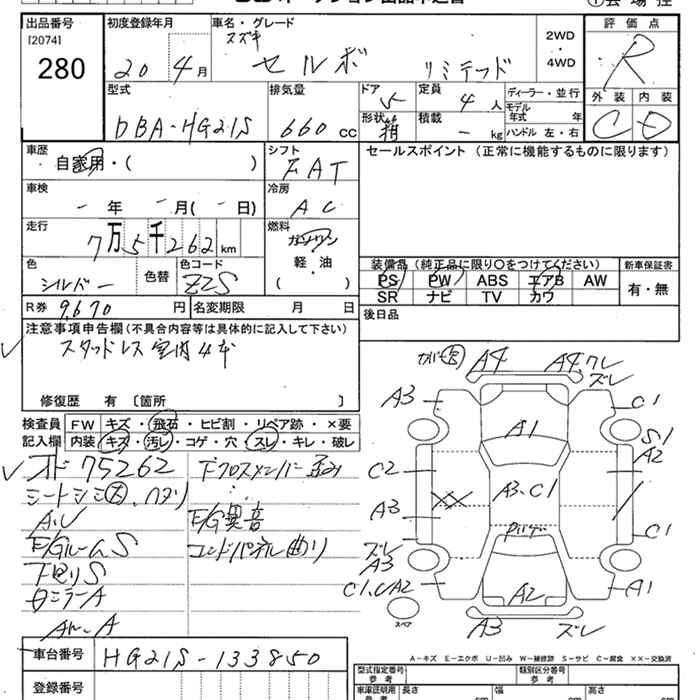 出品番号
[2074]
280
初度登録年月
20 4月
車名・グレード
スズキ
セルボ リミテッド
2WD
・
4WD
評価点
R
外装 内装
C D
型式
DBA-HG21S
排気量
660 cc
ドア
5
定員
4 人
ディーラー・並行
モデル年式 年
形状 箱
積載 - kg
ハンドル 左・右
車歴
自家用・( )
シフト
FAT
セールスポイント (正常に機能するものに限ります)
車検
- 年 - 月 ( - 日)
冷房
AC
走行
7万5千262 km
燃料
ガソリン
軽・油
( )
色
シルバー
色替
色コード
Z2S
装備品 (純正品に限り〇をつけてください)
新車保証書
PS PW ABS エアB AW
SR ナビ TV カワ
有・無
R券 9,670 円
名変期限 月 日
後日品
注意事項申告欄(不具合内容等は具体的に記入して下さい)
スタッドレス室内4本
修復歴 有 〔箇所 〕
検査員記入欄
FW キズ・飛石・ヒビ割・リペア跡・×要
内装 キズ・汚レ・コゲ・穴・スレ・キレ・破レ
オド 75262
下クロスメンバー歪み
シートシミ大、ヘタリ
A.U
E/G異音
E/GルームS
コンドパネル曲り
下廻りS
ロミラーA
A4 A4 ワレ
ズレ
A3 C1
A1 S1
A2
C2
A3.C1
A3 XX
C1
ズレ
A3
C1.UA2
A2 A1
スペア
A3 ズレ
車台番号 HG21S-133850
登録番号
A-キズ E-エクボ U-凹み W-補修跡 S-サビ C-腐食 ××-交換済
型式指定番号
参考
類別区分番号
参考
車庫証明用
参考
長さ cm
幅 cm
高さ cm